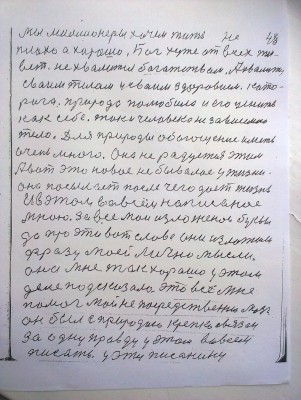 мы милионеры хочем жить не 48
плохо а хорошо. Бог хуже от всех жи
вет. не хвалится богатством. А хвалит
своим телом и своим здоровием. кото
рого, природа полюбила и его ценить
как себе. тоже человеко не зависимо
тело. Для природы обогощение иметь
очень много. Она не радуется этим
А вот это новое не бывалое у жизни
она посылает после чего дает жизнь
И в этом во всем написаное
мною. За все мои изложеное буквы
да про эти вот слова они изложили
фразу моей лично мысли.
она мне так хорошо у этом
деле подсказала это все мне
помог мой не посредственно мозг
он был с природою крепко связан
за одну правду у этом во всем
писать. у эту писанину